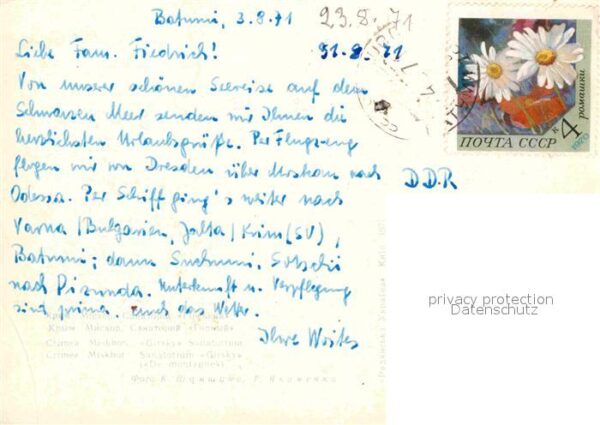 Batumi, 3.8.71
23.8.71
Liebe Fam. Friedrich!
31.8.71
Von unserer schönen Seereise auf dem
Schwarzen Meer senden wir Ihnen die
herzlichsten Urlaubsgrüße. Per Flugzeug
flogen wir von Dresden über Moskau nach
Odessa. Per Schiff ging's weiter nach
Varna/Bulgarien, Jalta/Krim(SU),
Batumi; dann Suchumi, Sotschi
nach Pizunda. Unterkunft u. Verpflegung
sind prima. auch das Wetter.
Ihre
DDR
ромашки
к 4
1970
ПОЧТА СССР
privacy protection
Datenschutz
Крим Місхор. Санаторий «Гірський»
Crimea Miskhor. «Girsky» Sanatorium
Crimée Miskhor. Sanatorium «Girsky»
(«De montagne»)
Фото К.